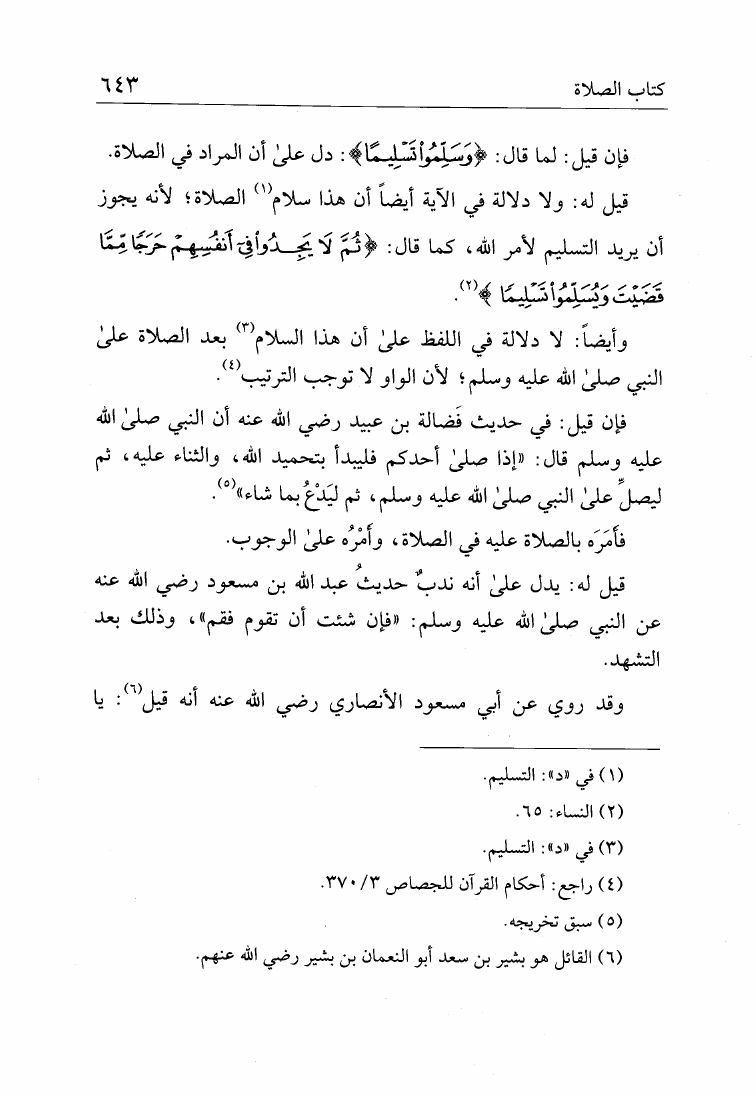 كتاب الصلاة ٦٤٣
فإن قيل: لما قال: ﴿وَسَلِّمُوا۟ تَسْلِيمًا﴾: دل علىٰ أن المراد في الصلاة.
قيل له: ولا دلالة في الآية أيضاً أن هذا سلام(١) الصلاة؛ لأنه يجوز
أن يريد التسليم لأمر الله، كما قال: ﴿ثُمَّ لَا يَجِدُوا۟ فِىٓ أَنفُسِهِمْ حَرَجًا مِّمَّا
قَضَيْتَ وَيُسَلِّمُوا۟ تَسْلِيمًا﴾(٢).
وأيضاً: لا دلالة في اللفظ علىٰ أن هذا السلام(٣) بعد الصلاة علىٰ
النبي صلىٰ الله عليه وسلم؛ لأن الواو لا توجب الترتيب(٤).
فإن قيل: في حديث فَضالة بن عبيد رضي الله عنه أن النبي صلىٰ الله
عليه وسلم قال: «إذا صلىٰ أحدكم فليبدأ بتحميد الله، والثناء عليه، ثم
ليصلِّ علىٰ النبي صلىٰ الله عليه وسلم، ثم ليَدْعُ بما شاء»(٥).
فأمَرَه بالصلاة عليه في الصلاة، وأمْرُه علىٰ الوجوب.
قيل له: يدل علىٰ أنه ندبٌ حديثُ عبد الله بن مسعود رضي الله عنه
عن النبي صلىٰ الله عليه وسلم: «فإن شئت أن تقوم فقم»، وذلك بعد
التشهد.
وقد روي عن أبي مسعود الأنصاري رضي الله عنه أنه قيل(٦): يا
(١) في «د»: التسليم.
(٢) النساء: ٦٥.
(٣) في «د»: التسليم.
(٤) راجع: أحكام القرآن للجصاص ٣/ ٣٧٠.
(٥) سبق تخريجه.
(٦) القائل هو بشير بن سعد أبو النعمان بن بشير رضي الله عنهم.